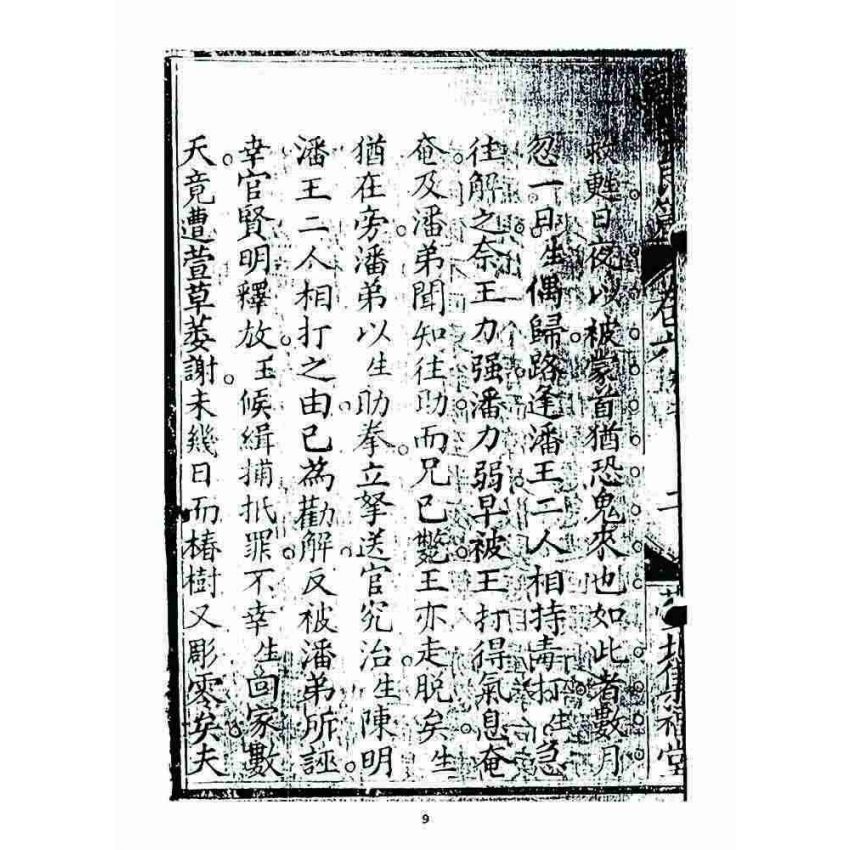 卷六
二
救甦日夜以被蒙首猶恐鬼來也如此者數月
忽一日生偶歸路逢潘王二人相持毒打生急
往解之奈王力强潘力弱早被王打得氣息奄
奄及潘弟聞知往助而兄已斃王亦走脫矣生
猶在旁潘弟以生助拳立拏送官究治生陳明
潘王二人相打之由已為勸解反被潘弟所誣
幸官賢明釋放王候緝捕抵罪不幸生回家數
天竟遭萱草萎謝未幾日而椿樹又彫零矣夫
9